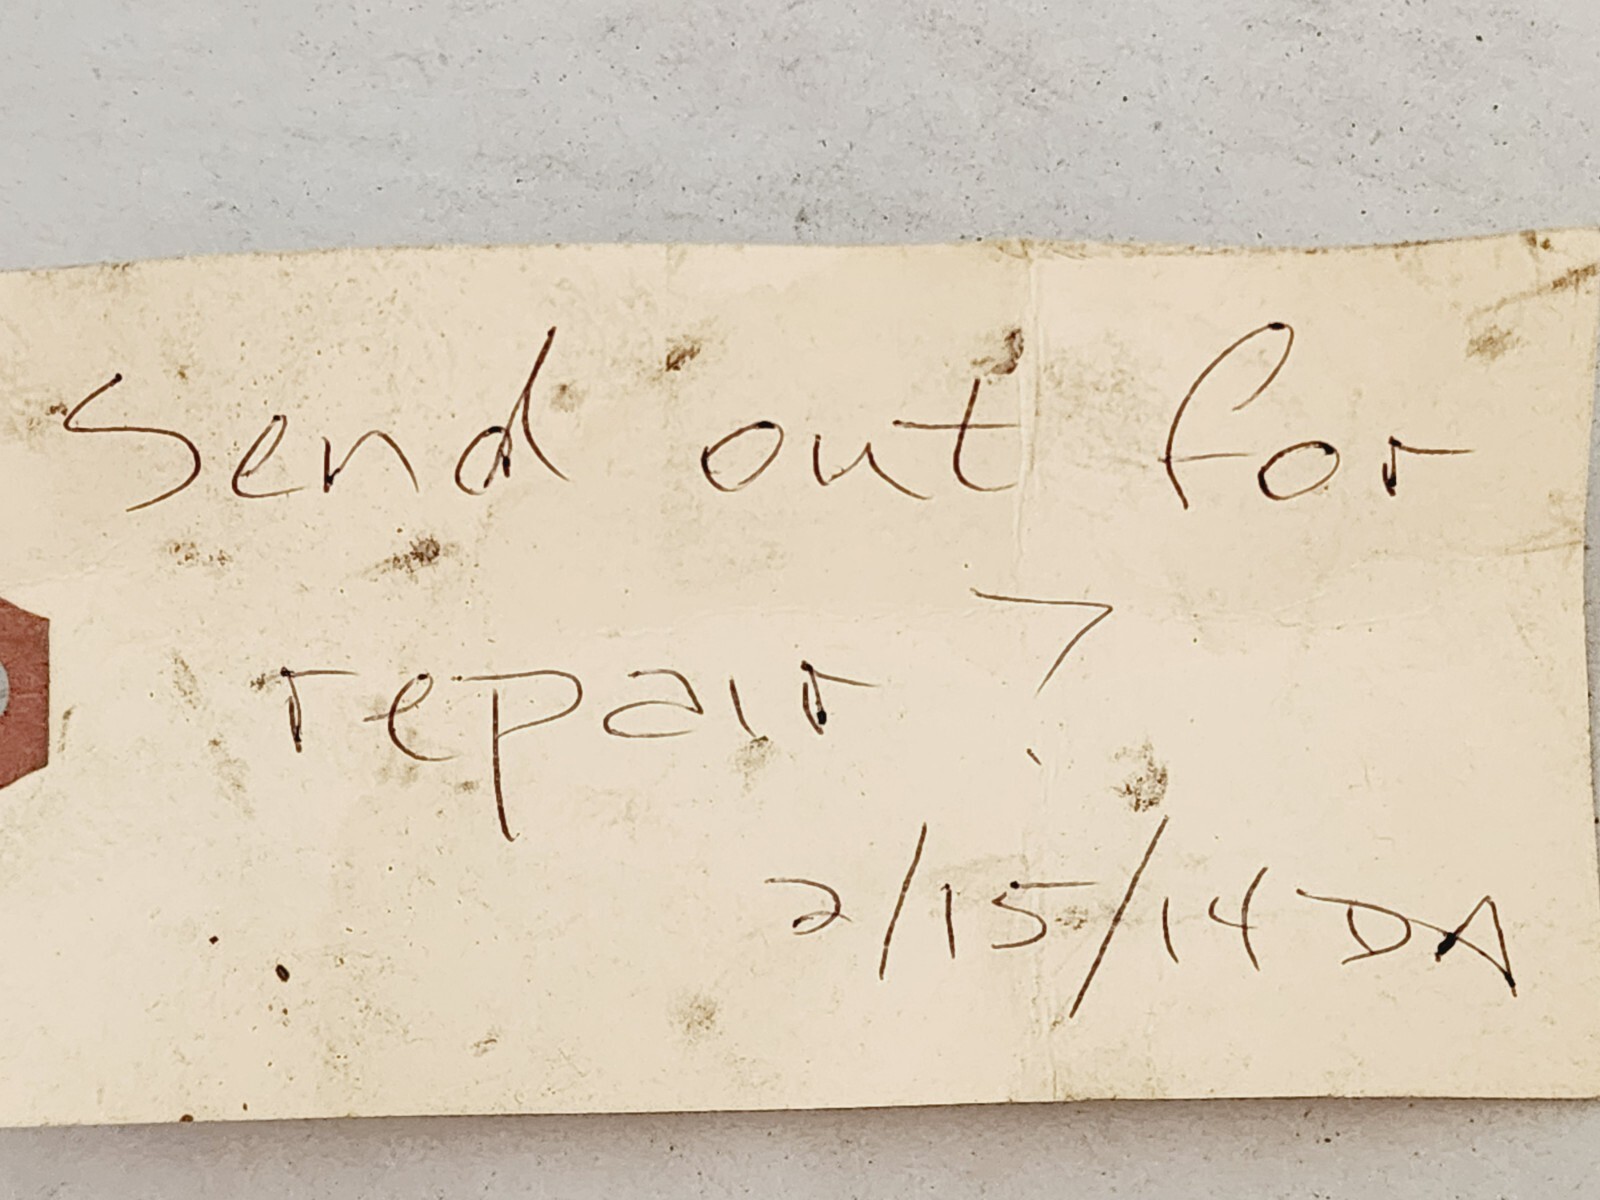 Send out for
repair?
2/15/14 DA